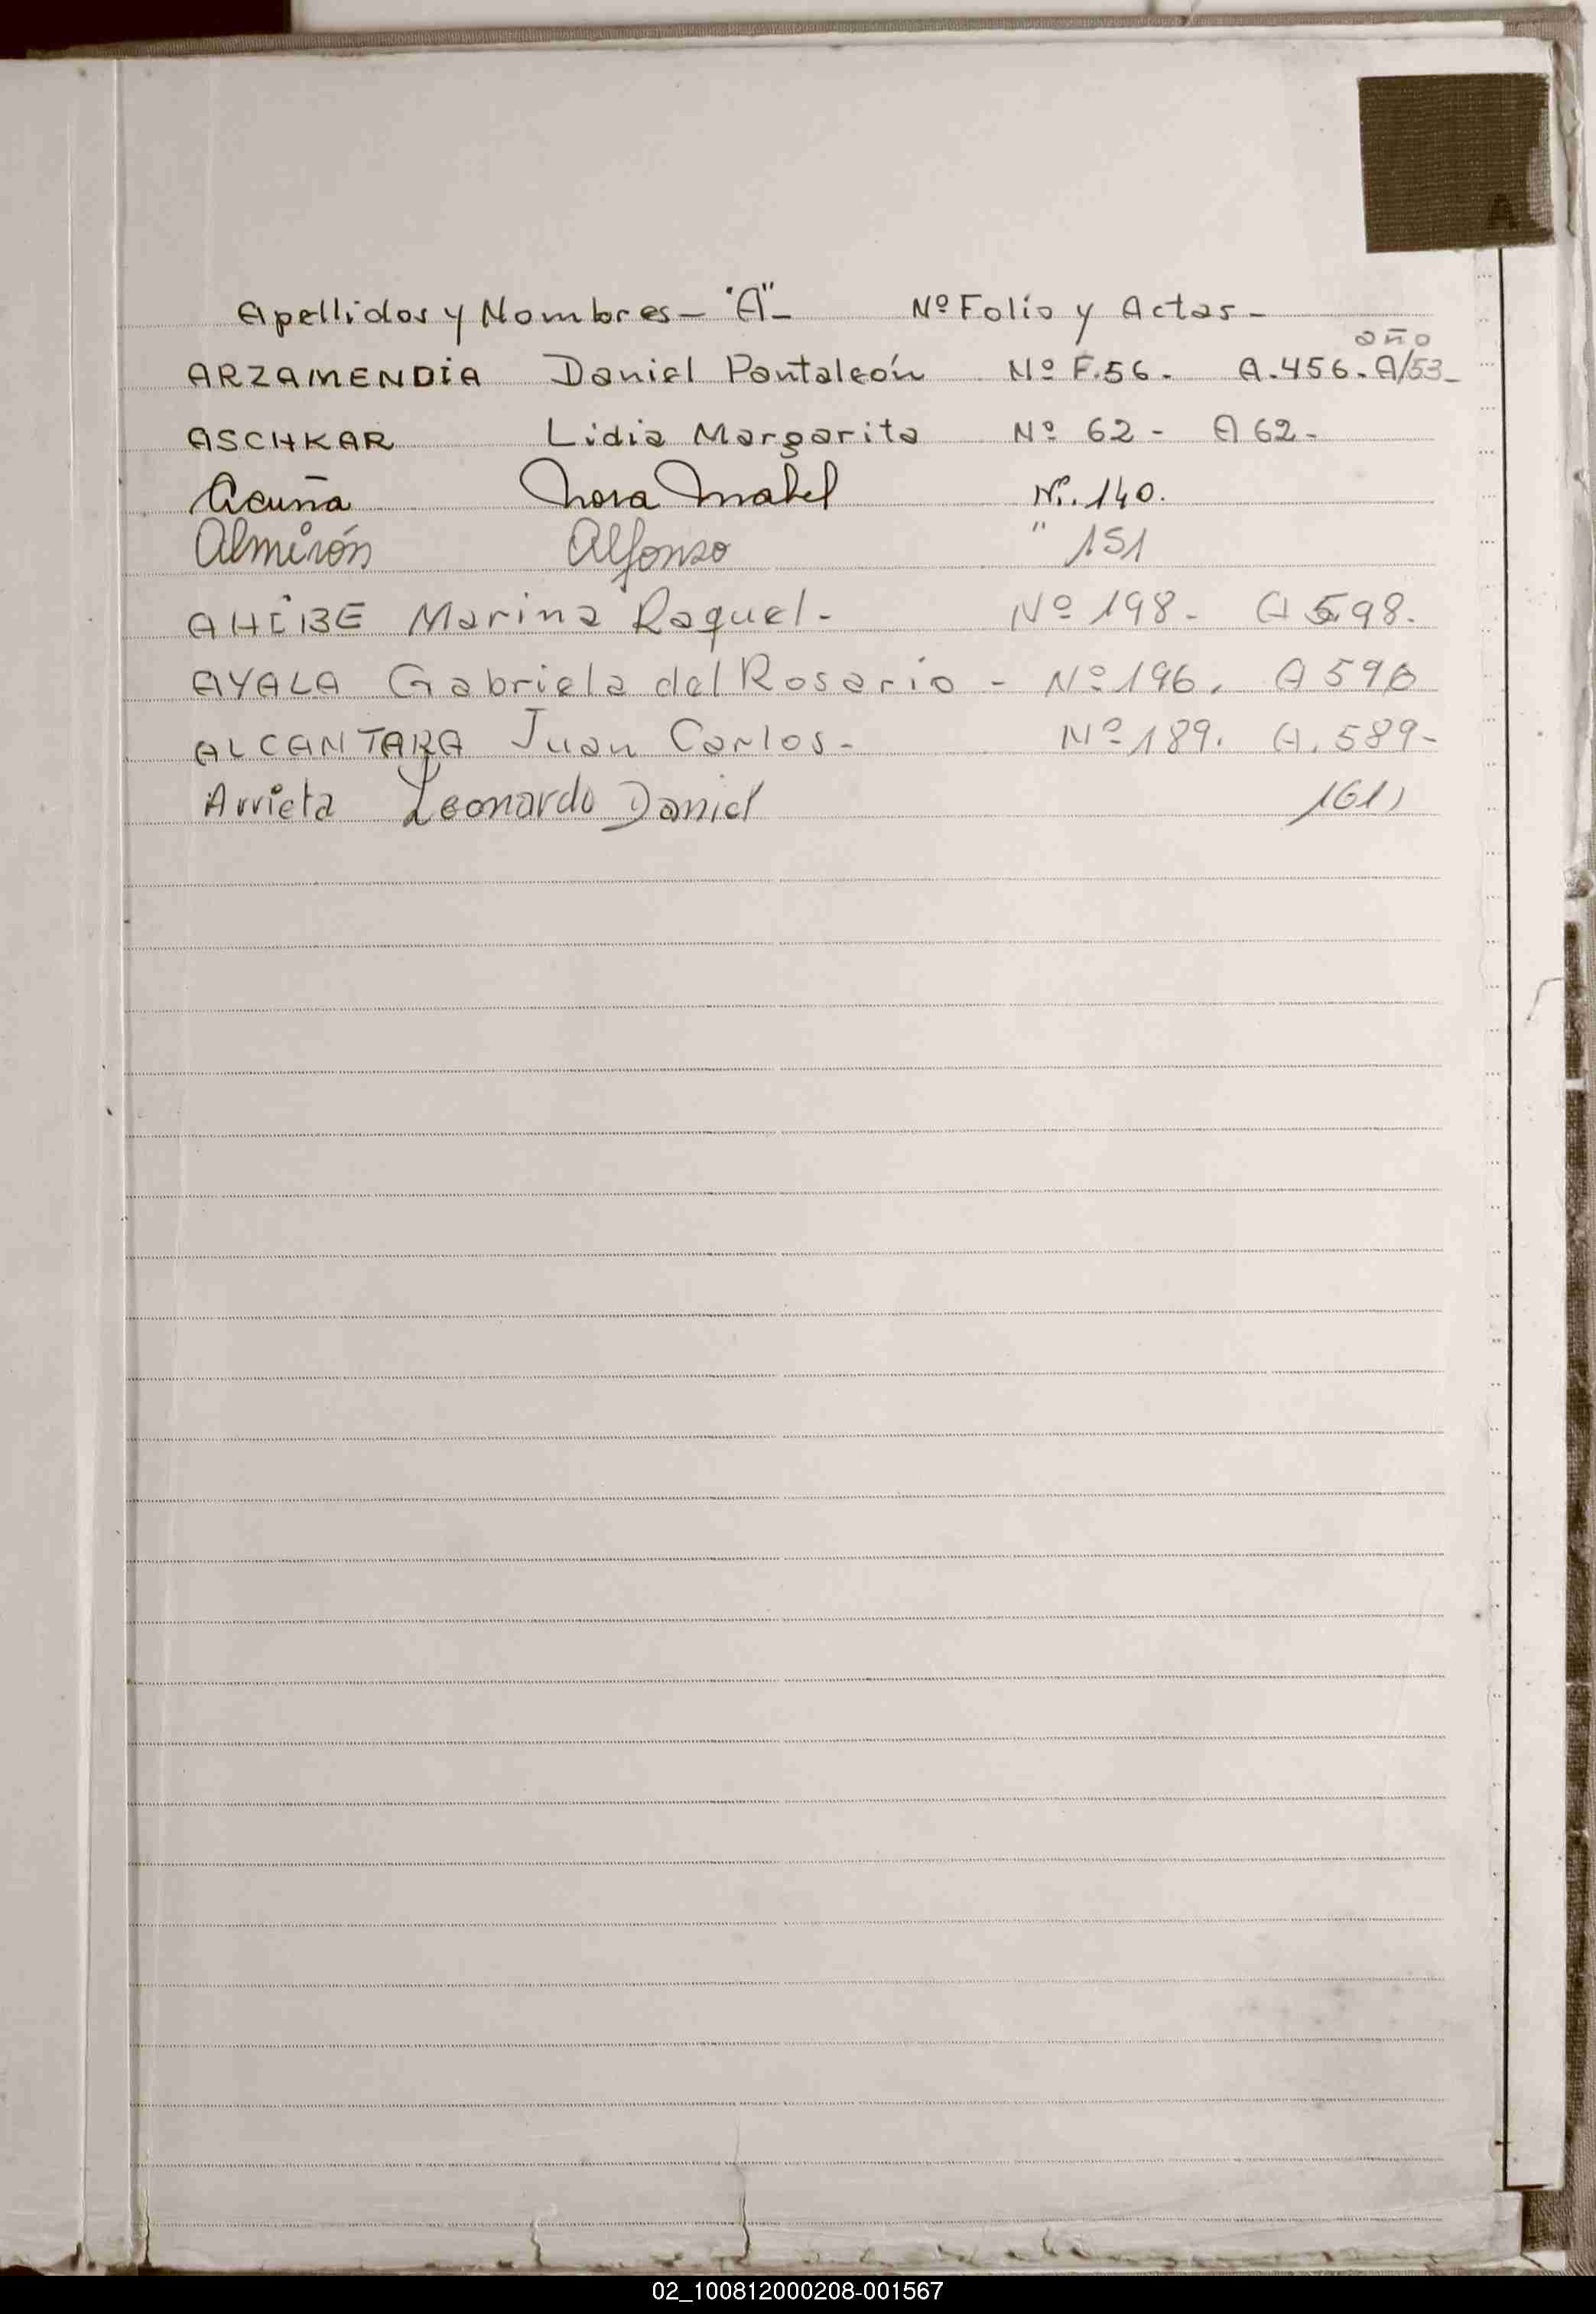 A
Apellidos y Nombres - "A" - Nº Folio y Actas -
año
ARZAMENDIA Daniel Pantaleón Nº F.56. A.456. A/53-
ASCHKAR Lidia Margarita Nº 62 - A 62 -
Acuña Nora Mabel Nº. 140.
Almirón Alfonso " 151
AHIBE Marina Raquel - Nº 198 - A 598.
AYALA Gabriela del Rosario - Nº 196. A 596
ALCANTARA Juan Carlos - Nº 189. A. 589 -
Arrieta Leonardo Daniel 161
02_100812000208-001567